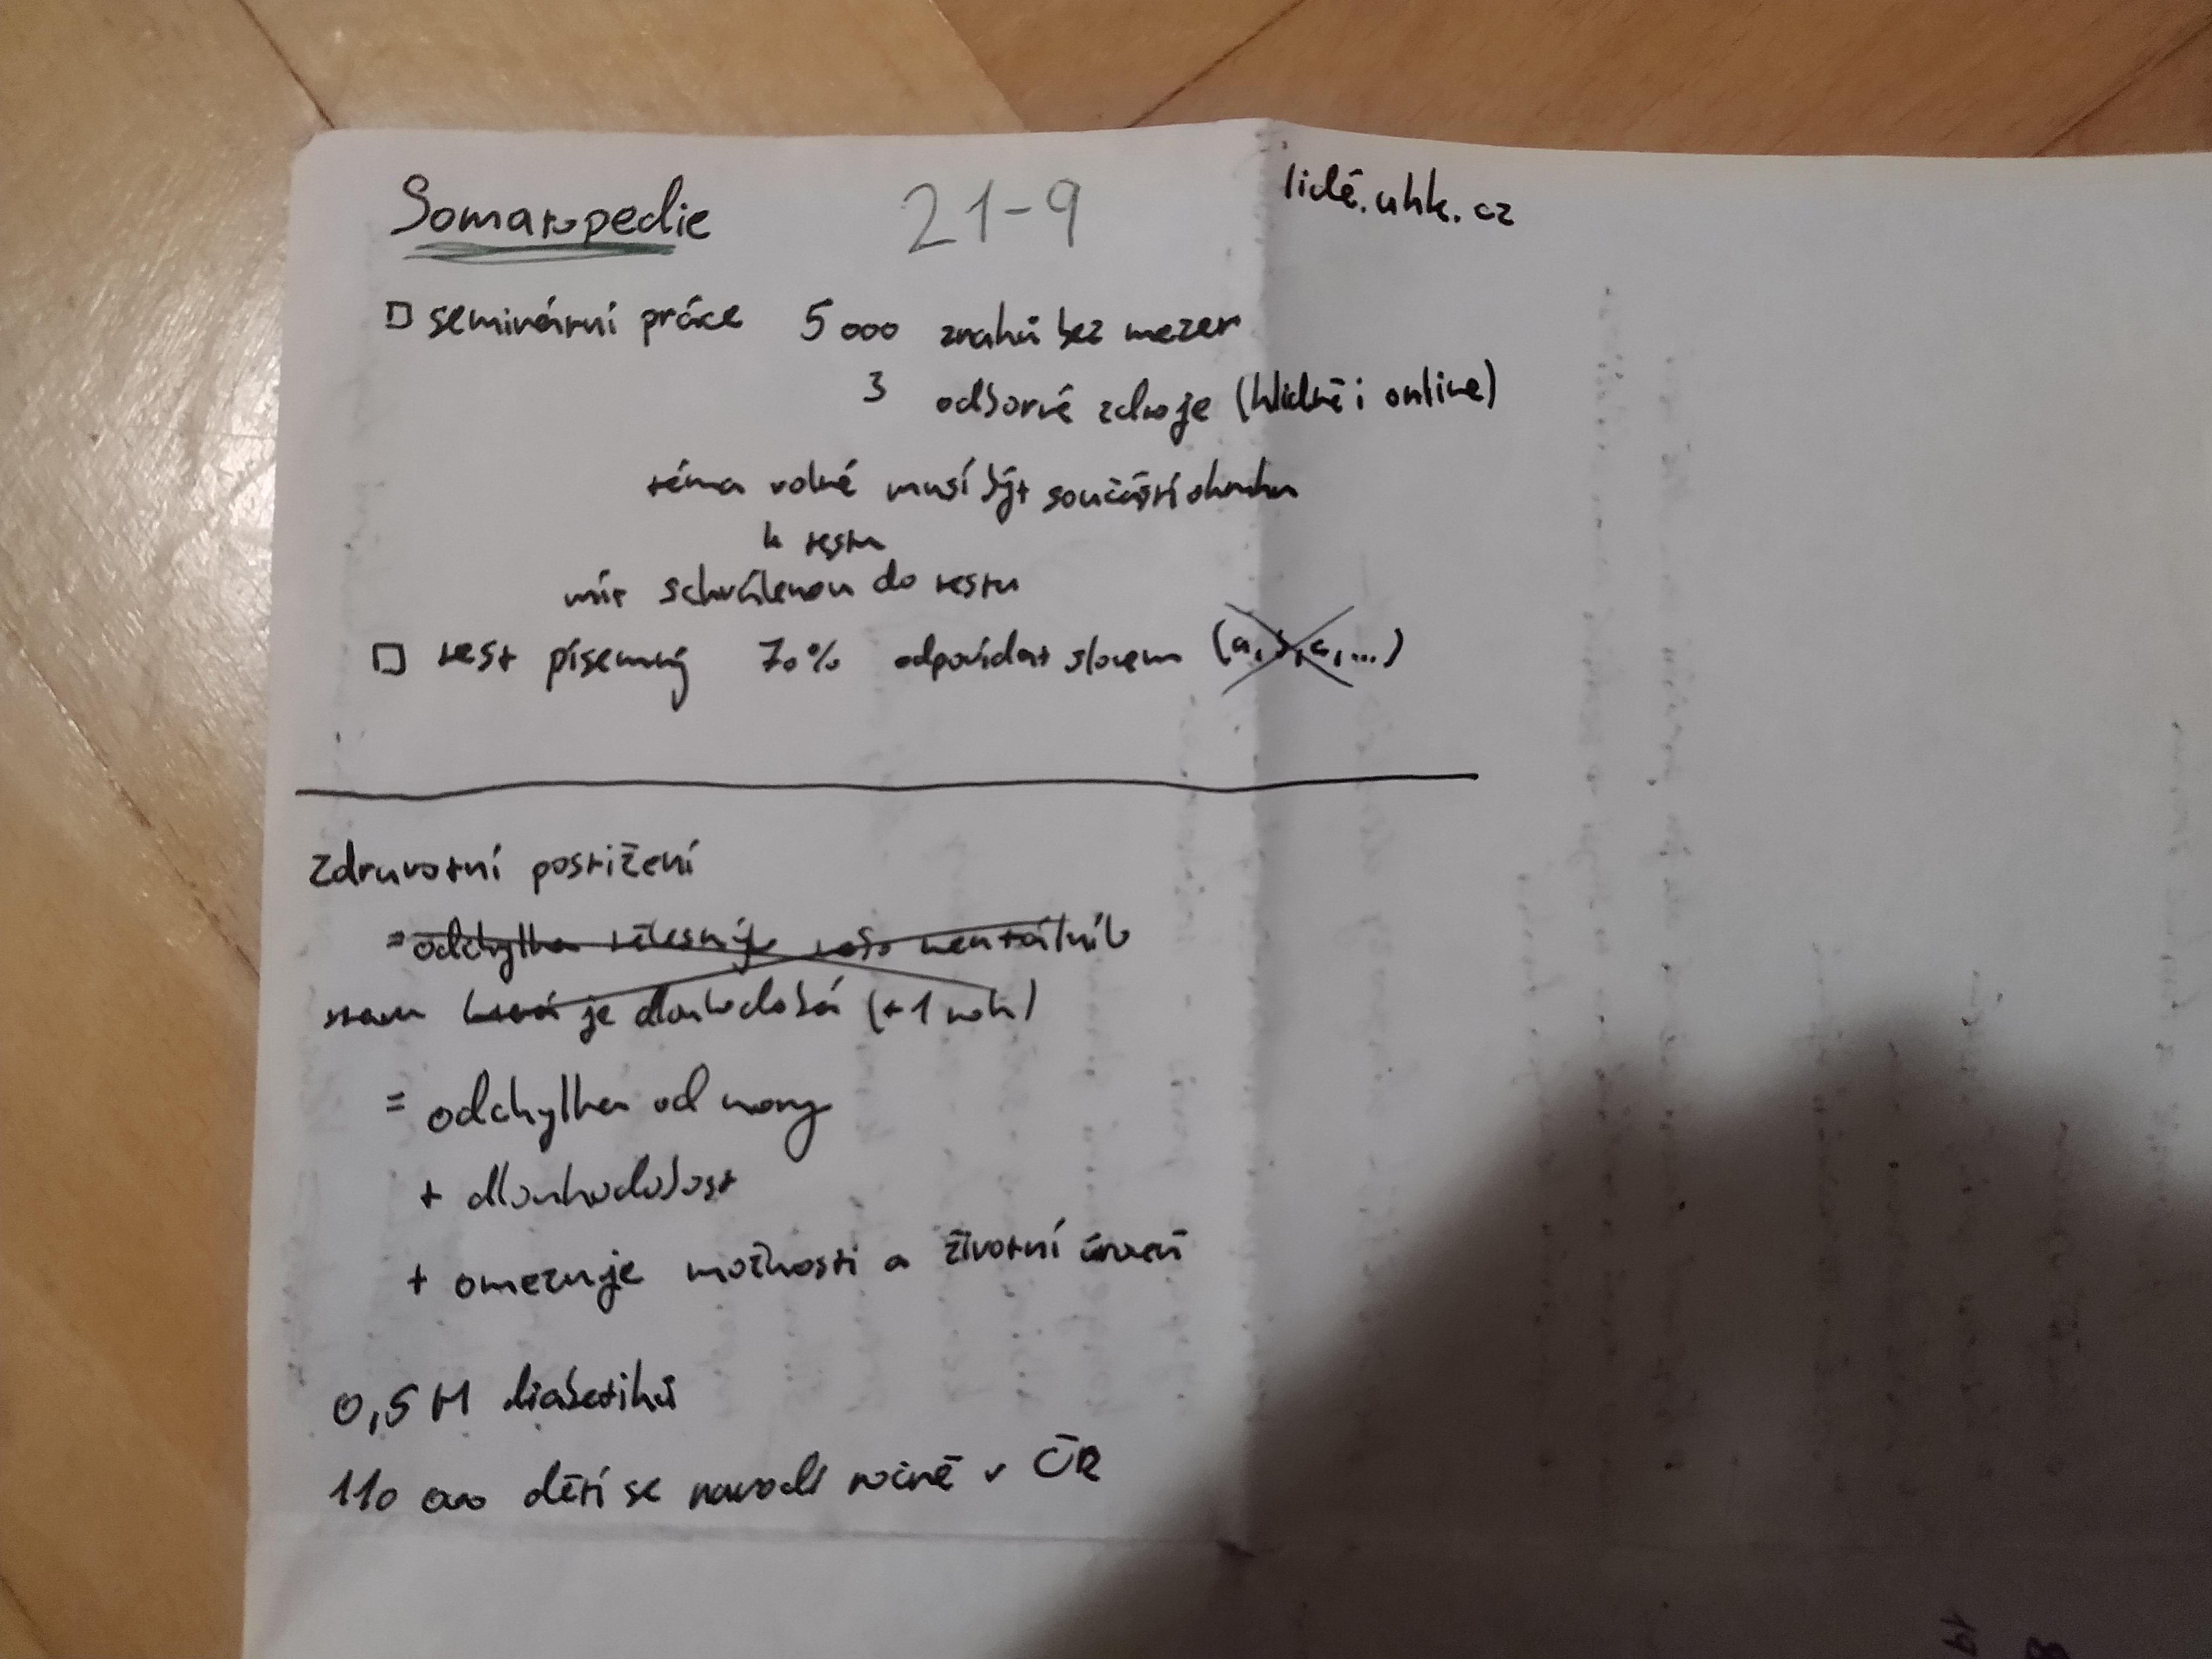 Somatopedie 21-9 lidé.uhk.cz
□ seminární práce 5 000 znaků bez mezer
3 odborné zdroje (klidně i online)
téma volné musí být součástí okruhu
k testu
mít schválenou do testu
□ test písemný 70% odpovídat slovem (a, b, c, ...)
Zdravotní postižení
= odchylka tělesný nebo mentálního
stavu která je dlouhodobá (+1 rok)
= odchylka od normy
+ dlouhodobost
+ omezuje možnosti a životní úroveň
0,5 M diabetiků
110 000 dětí se narodí ročně v ČR